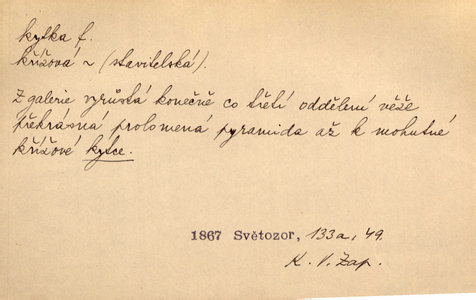 kytka f.
křížová ~ (stavitelská).
Z galerie vyrůstá konečně co třetí oddělení věže
překrásná prolomená pyramida až k mohutné
křížové kytce.
1867 Světozor, 133a, 49.
K. V. Zap.